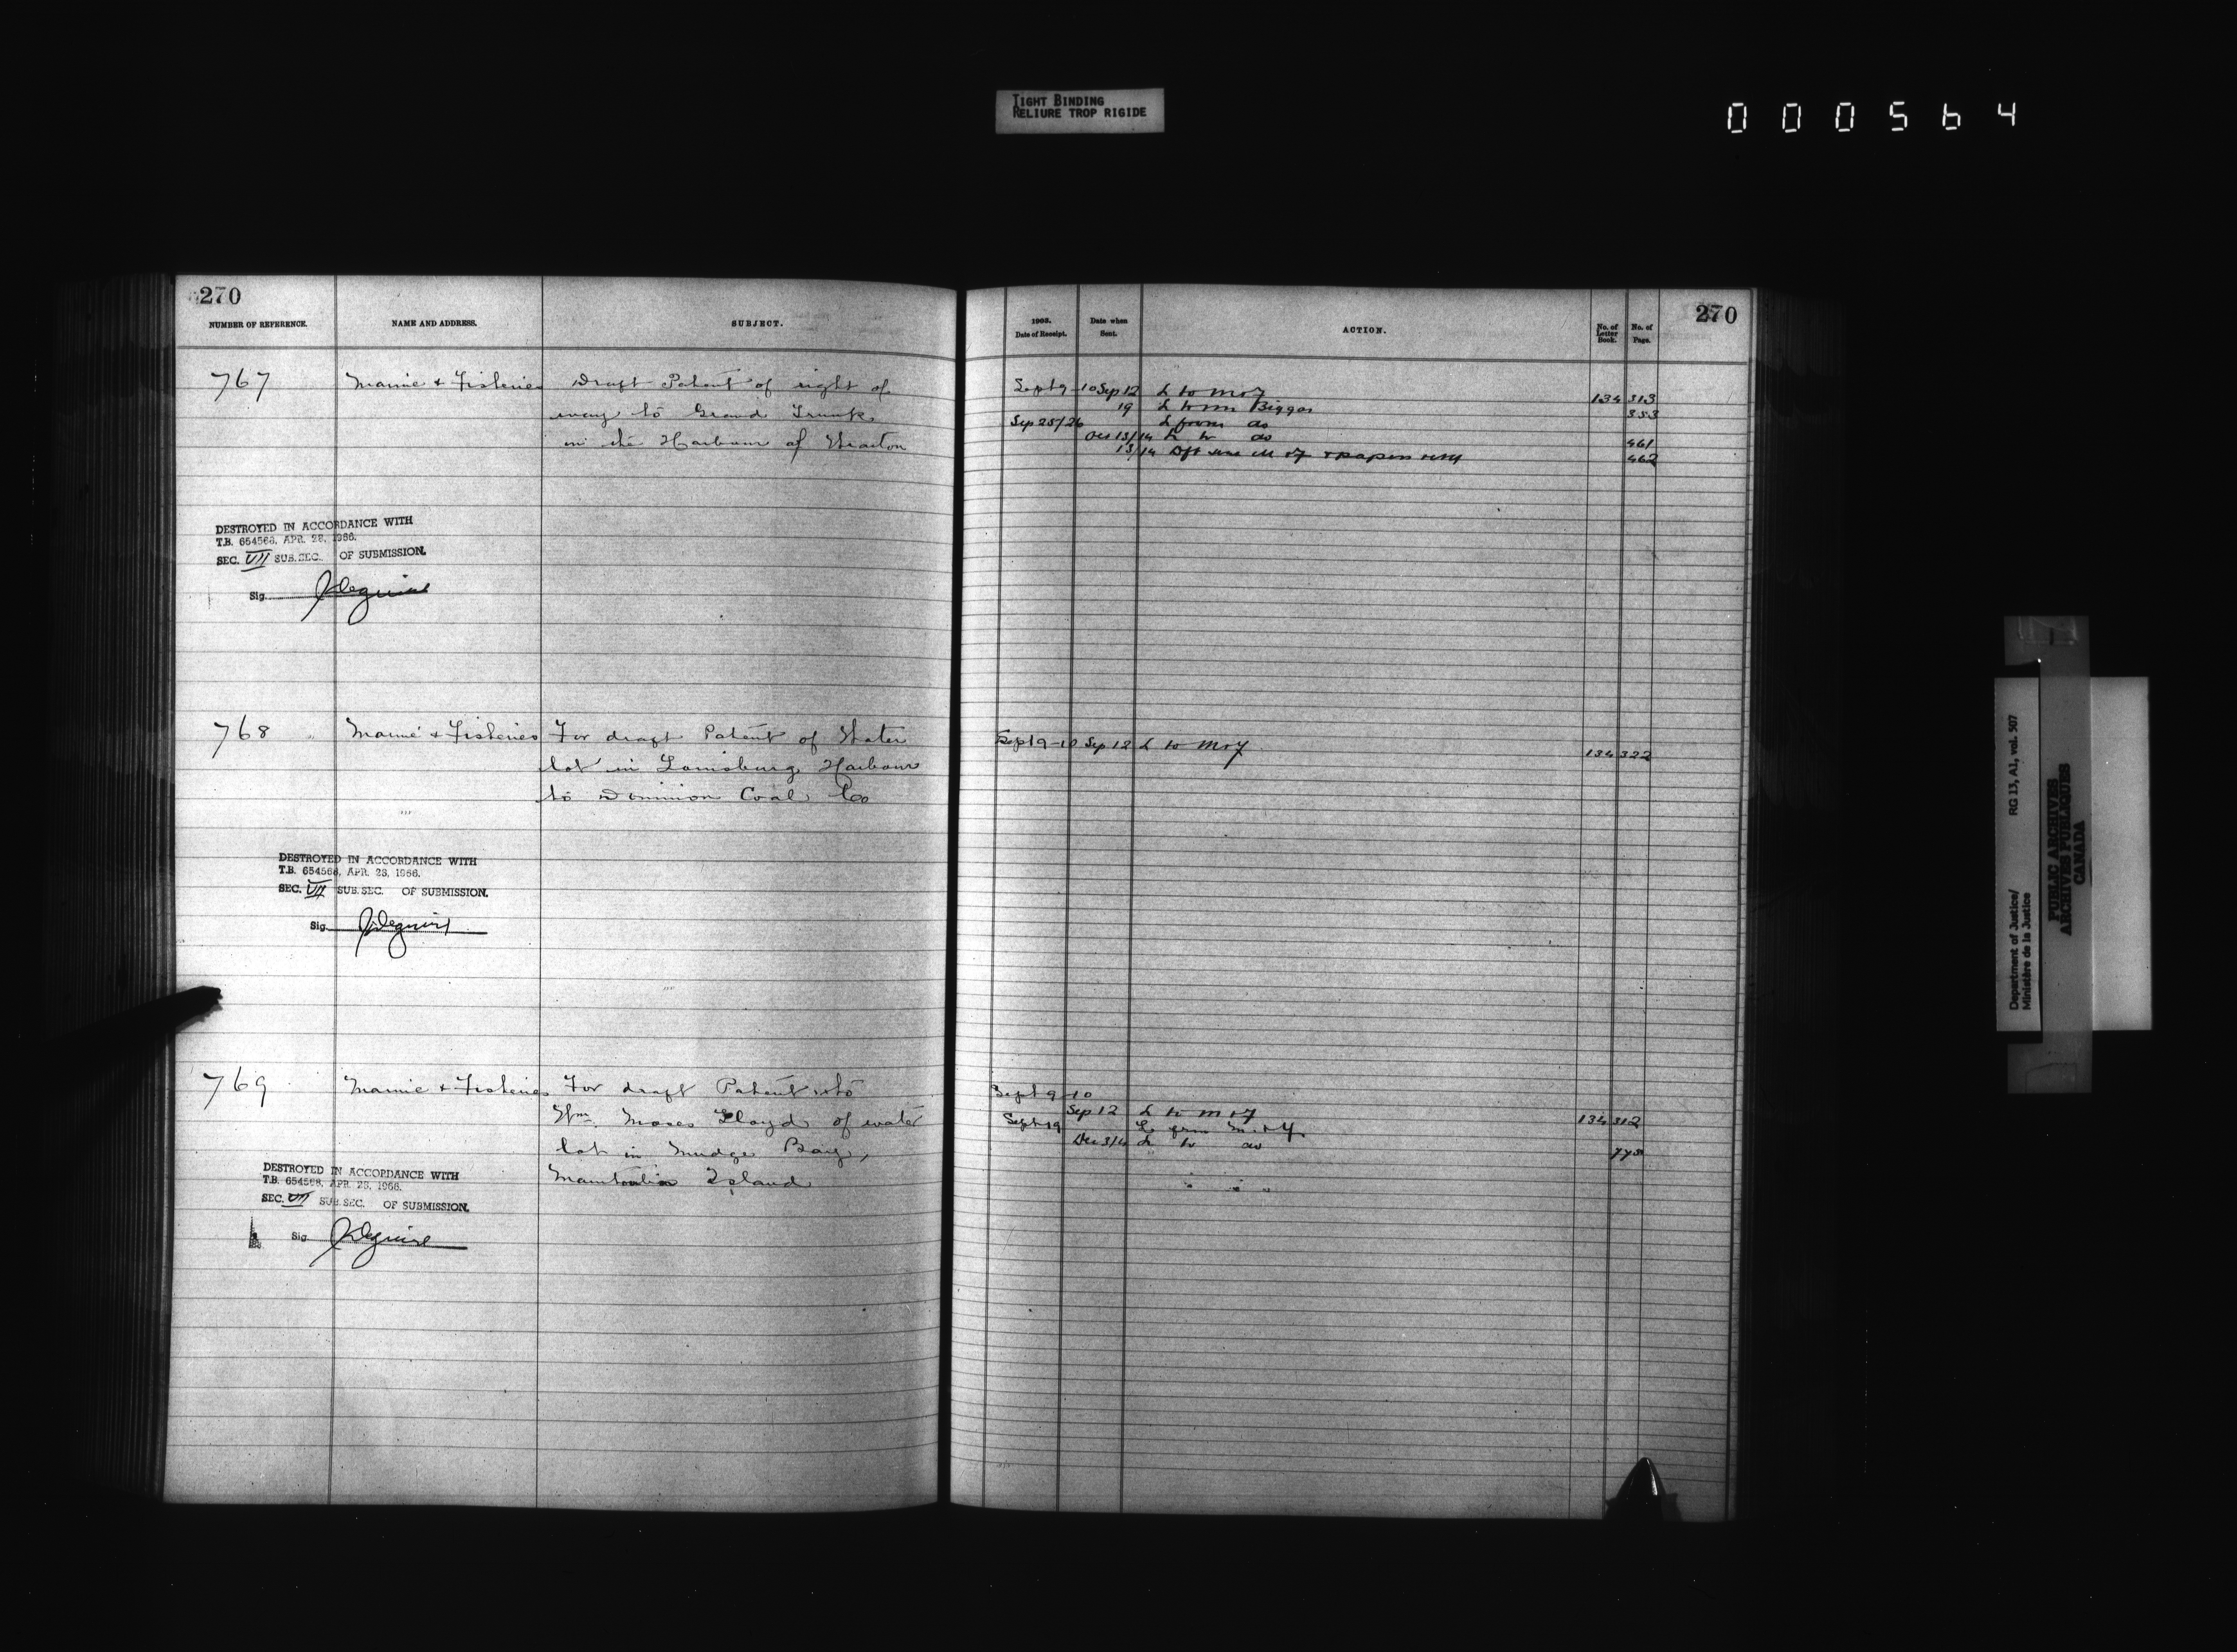 TIGHT BINDING
RELIURE TROP RIGIDE
000564
270
NUMBER OF REFERENCE.
NAME AND ADDRESS.
SUBJECT.
767
Marine & Fisheries
Draft Patent of right of
way to Grand Trunk
in the Harbour of
DESTROYED IN ACCORDANCE WITH
T.B. 654568, APR. 28, 1966.
SEC. VII SUB.SEC. OF SUBMISSION.
Sig.
768
Marine & Fisheries
For draft Patent of Water
lot in Louisburg Harbour
to Dominion Coal Co
DESTROYED IN ACCORDANCE WITH
T.B. 654568, APR. 28, 1966.
SEC. VII SUB.SEC. OF SUBMISSION.
Sig.
769
Marine & Fisheries
For draft Patent to
Wm. Moses Lloyd of water
lot in Mudge Bay,
Manitoulin Island
DESTROYED IN ACCORDANCE WITH
T.B. 654568, APR. 28, 1966.
SEC. VII SUB.SEC. OF SUBMISSION.
Sig.
270
1903.
Date of Receipt.
Date when
Sent.
ACTION.
No. of
Letter
Book.
No. of
Page.
Sept 9-10 Sep 12 L to M & F 134 313
19 L to Biggar 353
Sep 25/26 L from do
Oct 13/14 L to do 461
13/14 Dft M & F & papers 462
Sept 9-10 Sep 12 L to M & F 134 322
Sept 9-10
Sep 12 L to M & F 134 312
Sept 19 L from M. & F.
Dec 3/4 L to do 775
Department of Justice/
Ministère de la Justice
RG 13, A1, vol. 507
PUBLIC ARCHIVES
ARCHIVES PUBLIQUES
CANADA